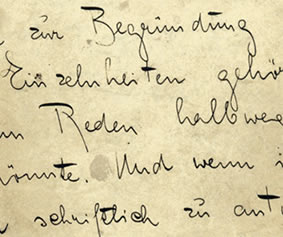 zur Begründung
Einzelnheiten gehör
Reden halbweg
önnte. Und wenn i
schriftlich zu ant